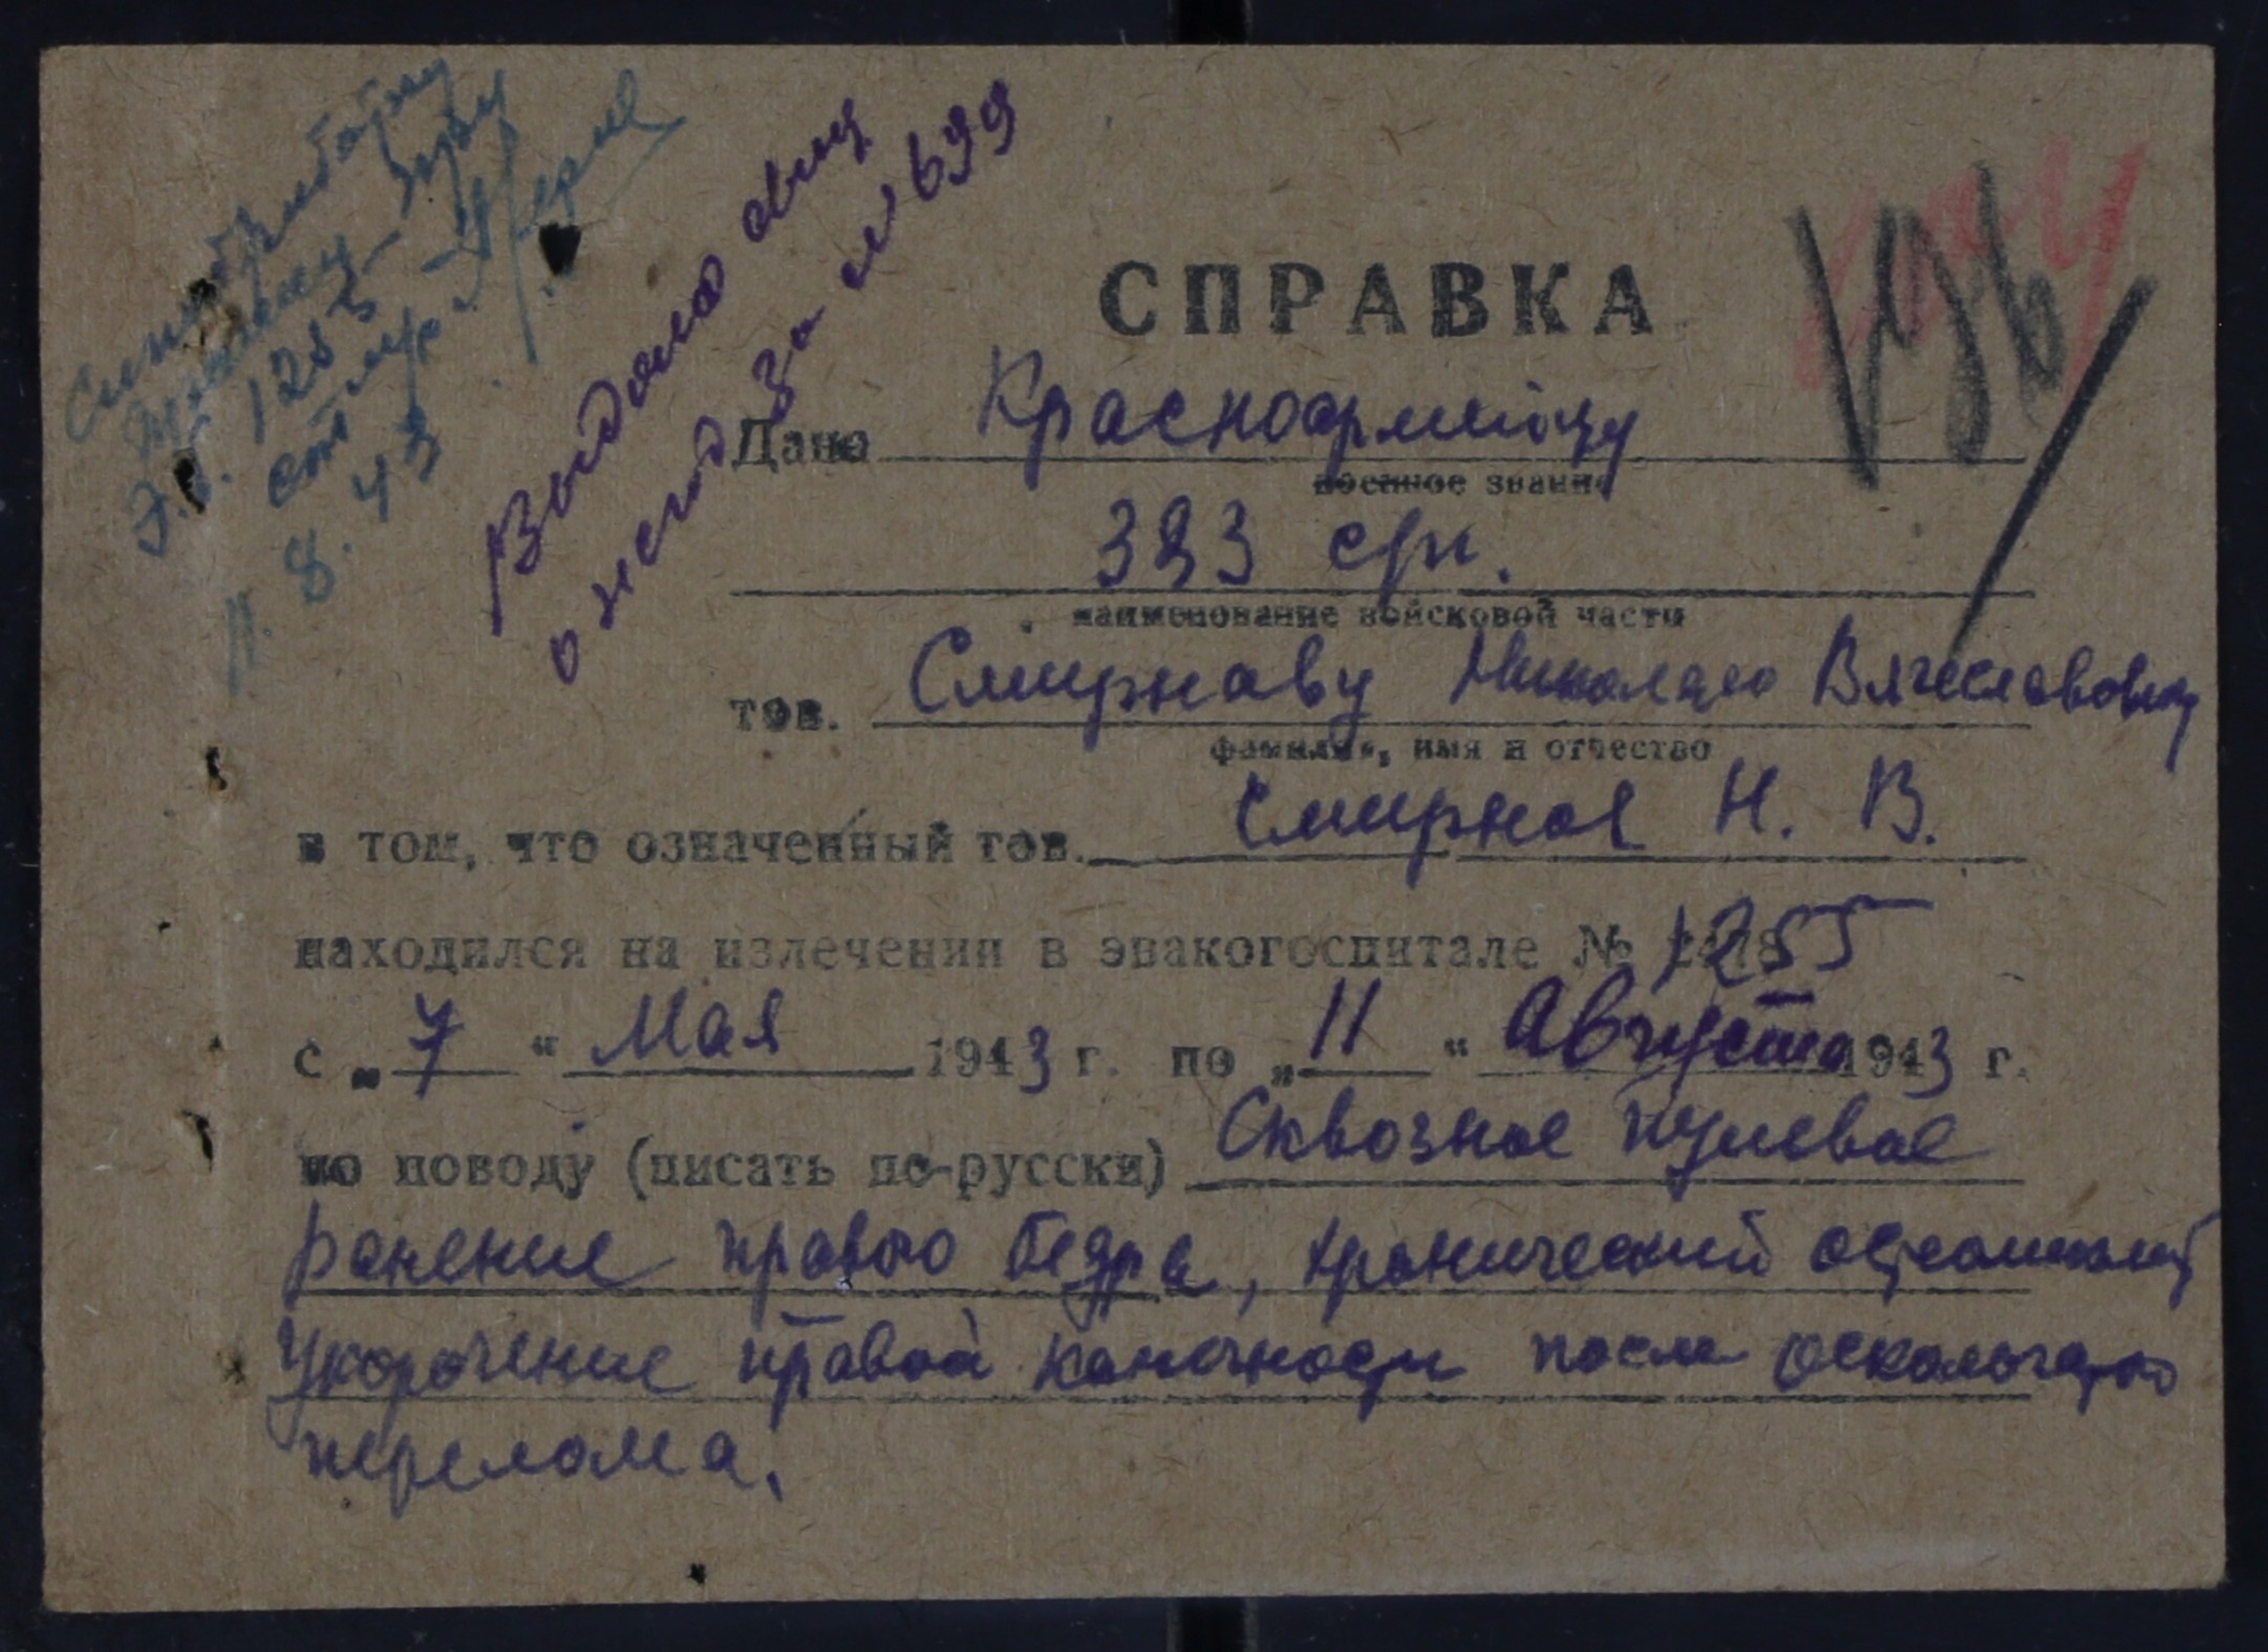 СПРАВКА
Дана Красноармейцу
военное звание
383 сп.
наименование войсковой части
тов. Смирнову Николаю Вячеславовичу
фамилия, имя и отчество
в том, что означенный тов. Смирнов Н. В.
находился на излечении в эвакогоспитале № 1255
с „7“ Мая 1943 г. по „11“ Августа 1943 г.
по поводу (писать по-русски) Сквозное пулевое
ранение правого бедра, хронический остеомиелит
Укорочение правой конечности после оскольчатого
перелома.
Выдано
за № 699
1255
11. 8. 43